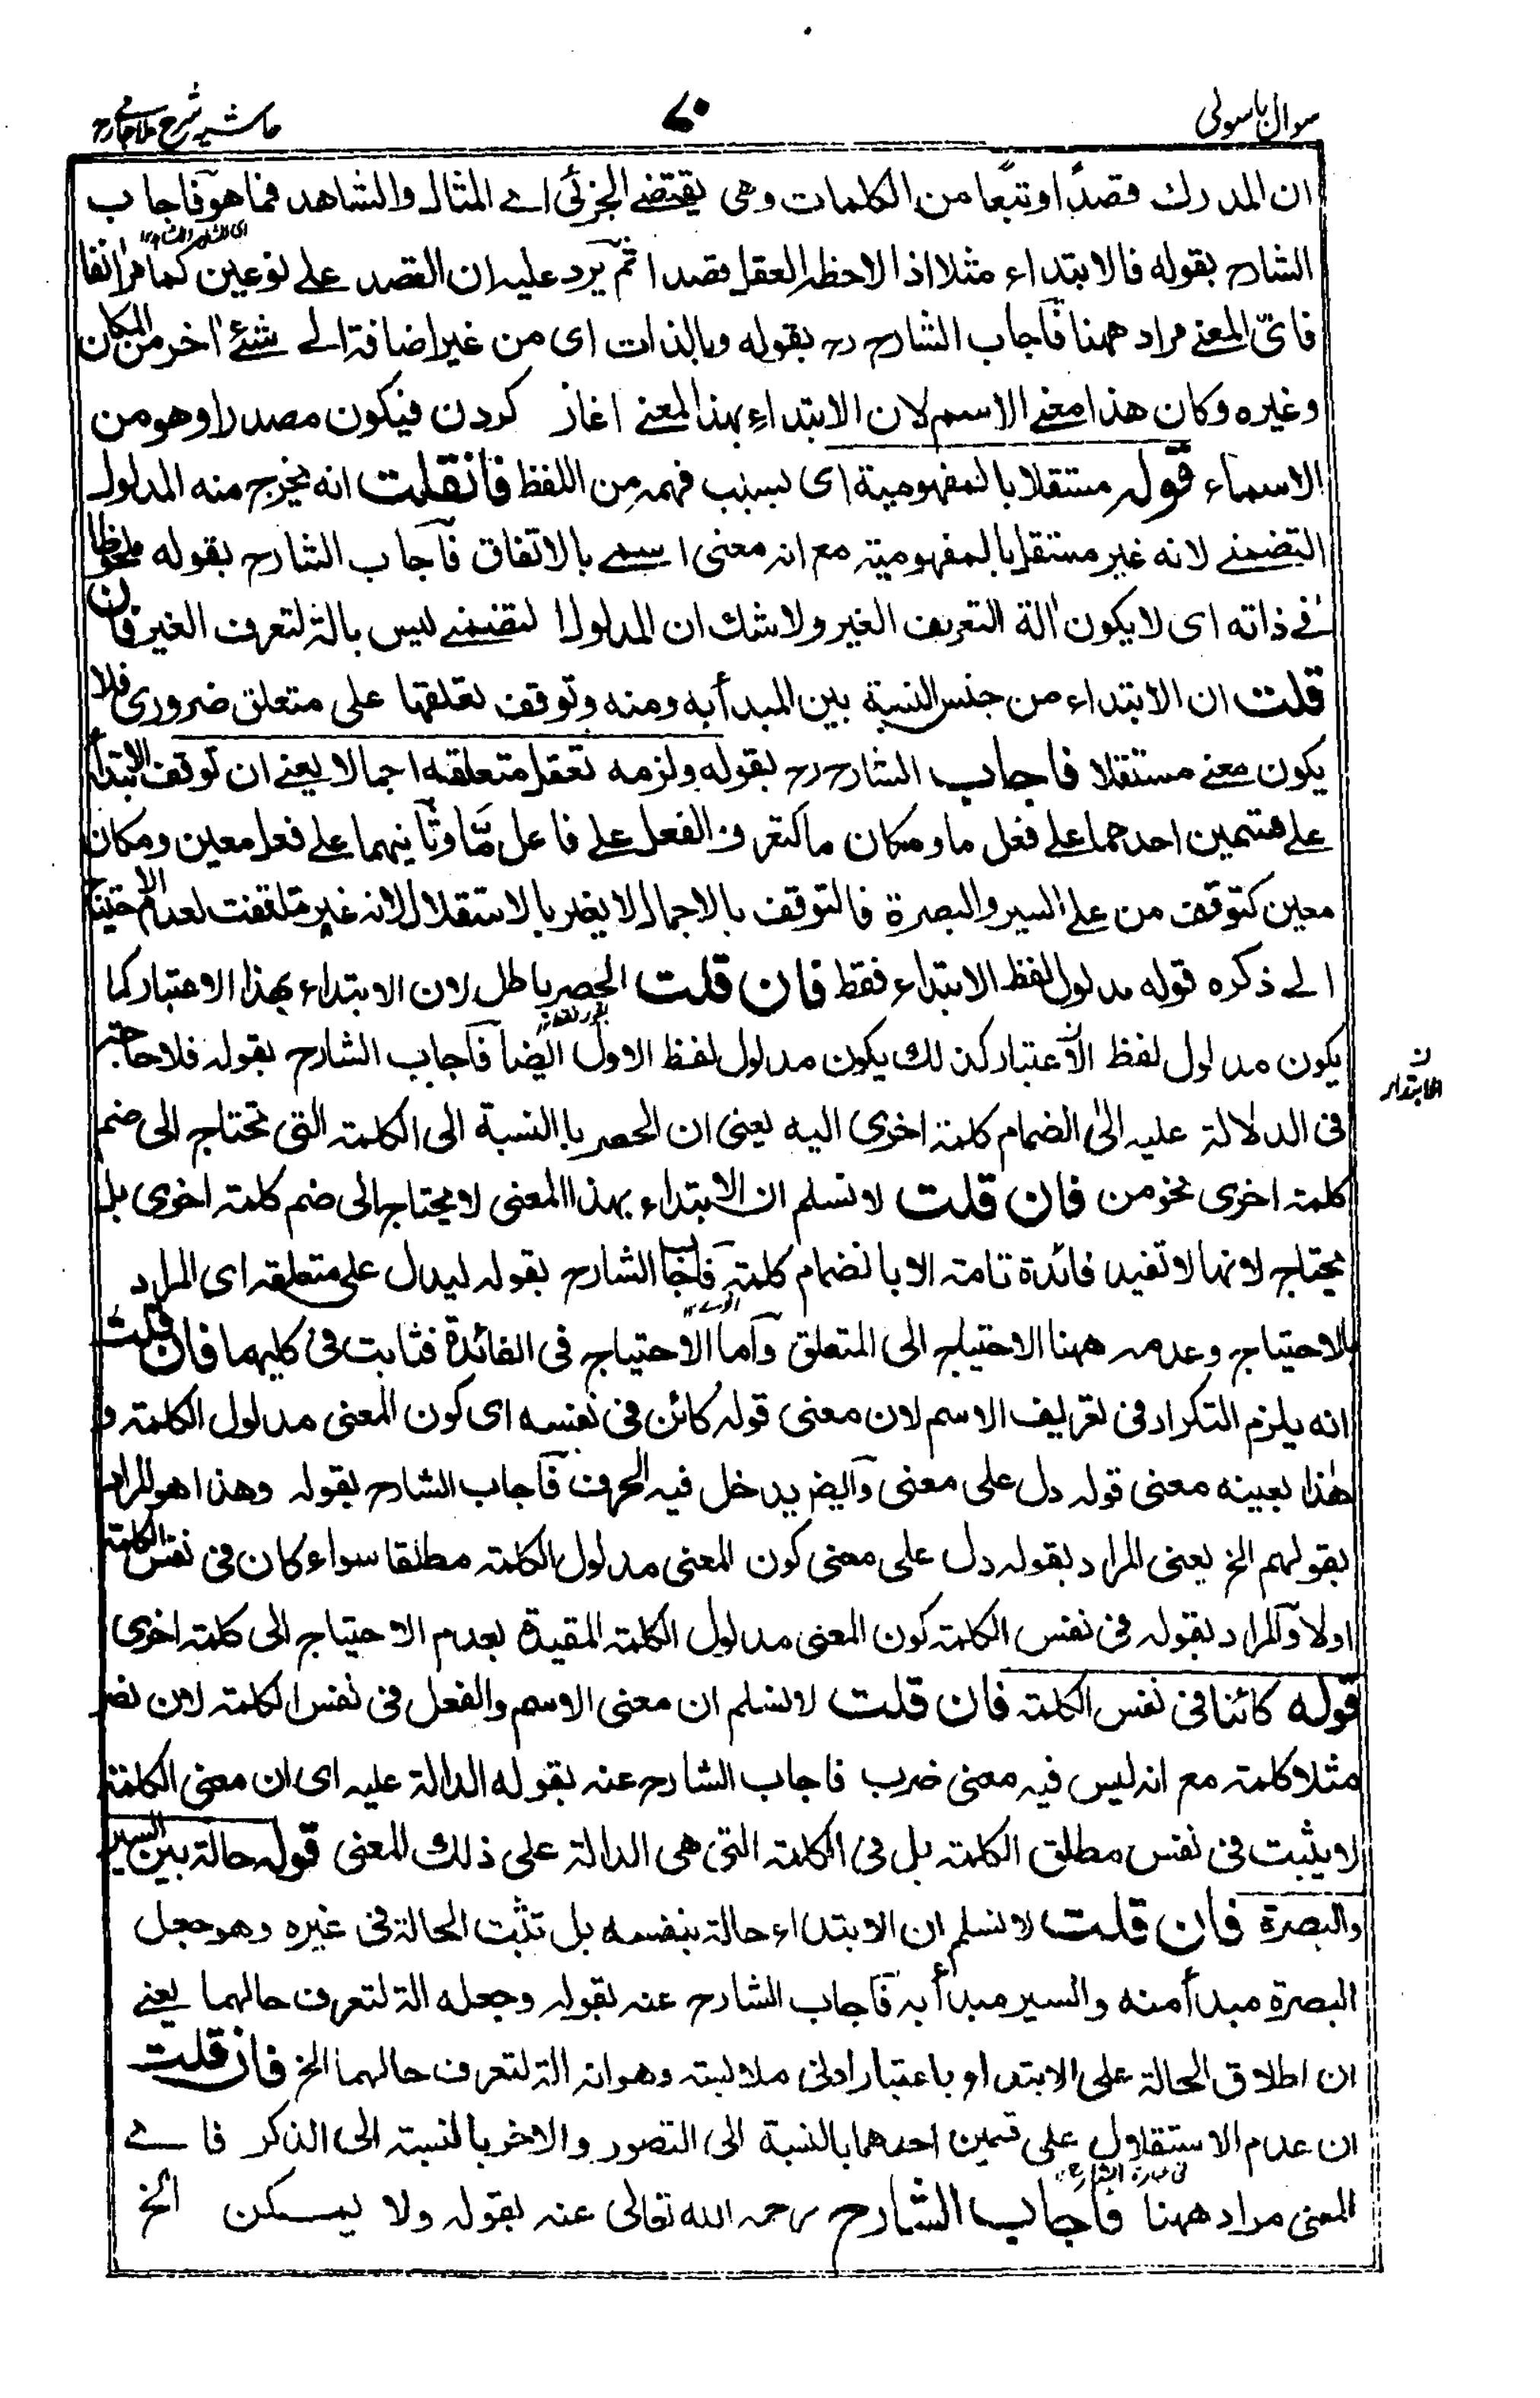 سوال باسولی
٧٠
حاشیہ شرح ملا جامی رح
ان المدرك قصدًا او تبعًا من الكلمات وهی يقتضے الجزئی اے المثال والشاهد فما هو فاجاب
الشارح بقوله فالابتداء مثلا اذا لاحظہ العقل قصدا ثم یرد علیہ ان القصد علے نوعین كما مر انفا
فایّ المعنے مراد ههنا فاجاب الشارح رح بقوله وبالذات ای من غیر اضافة الے شئے اخر من المكان
وغیره وكان هذا معنے الاسم لان الابتداء بهذا المعنے اغاز كردن فیكون مصدرا وهو من
الاسماء قوله مستقلا بالمفهومیة ای بسبب فهمہ من اللفظ فانقلت انه یخرج منه المدلول
التضمنے لانه غیر مستقل بالمفهومیة مع انہ معنی اسمے بالاتفاق فاجاب الشارح بقوله ملحوظا
فے ذاته ای لا یكون الة التعریف الغیر ولا شك ان المدلول التضمنے لیس بالة لتعرف الغیر فان
قلت ان الابتداء من جنس النسبة بین المبدأ به ومنه وتوقف تعلقها علی متعلق ضروری فلا
یكون معنے مستقلا فاجاب الشارح رح بقوله ولزمه تعقل متعلقه اجمالا یعنے ان توقف الابتداء
علے قسمین احدهما علے فعل ما ومكان ما كتعرف الفعل علے فاعل مّا وثانیهما علے فعل معین ومكان
معین كتوقف من علے السیر والبصرة فالتوقف بالاجمال لا یضر بالاستقلال لانه غیر ملتفت لعدم الاحتیاج
الے ذكره قوله مدلول لفظ الابتداء فقط فان قلت الحصر باطل لان الابتداء بهذا الاعتبار كما
یكون مدلول لفظ الاعتبار كذلك یكون مدلول لفظ الاول ایضا فاجاب الشارح بقوله فلا حاجة
ن الابتداء
فی الدلالة علیہ الی انضمام كلمة اخری الیه یعنی ان الحصر بالنسبة الی الكلمة التی تحتاج الی ضم
كلمة اخری نحو من فان قلت لا نسلم ان الابتداء بهذا المعنی لا یحتاج الی ضم كلمة اخری بل
یحتاج لانها لا تفید فائدة تامة الا بانضمام كلمة فاجاب الشارح بقوله لیدل علی متعلقه ای المراد
بالاحتیاج وعدمہ ههنا الاحتیاج الی المتعلق واما الاحتیاج فی الفائدة فثابت فی كلیهما فان قلت
انه یلزم التكرار فی تعریف الاسم لان معنی قوله كائن فی نفسه ای كون المعنی مدلول الكلمة و
هذا بعینه معنی قوله دل علی معنی وایضا یدخل فیه الحرف فاجاب الشارح بقوله وهذا هو المراد
بقولهم الخ یعنی المراد بقوله دل علی معنی كون المعنی مدلول الكلمة مطلقا سواء كان فی نفس الكلمة
اولا والمراد بقوله فی نفس الكلمة كون المعنی مدلول الكلمة المقیدة بعدم الاحتیاج الی كلمة اخری
قوله كائنا فی نفس الكلمة فان قلت لا نسلم ان معنی الاسم والفعل فی نفس الكلمة لان نصر
مثلا كلمة مع انه لیس فیه معنی ضرب فاجاب الشارح عنه بقوله الدالة علیه ای ان معنی الكلمة
لا یثبت فی نفس مطلق الكلمة بل فی الكلمة التی هی الدالة علی ذلك المعنی قوله حالة بین السیر
والبصرة فان قلت لا نسلم ان الابتداء حالة بنفسه بل تثبت الحالة فی غیره وهو جعل
البصرة مبدأ منه والسیر مبدأ به فاجاب الشارح عنه بقوله وجعله الة لتعرف حالهما یعنے
ان اطلاق الحالة علی الابتداء باعتبار ادنی ملابسة وهو انه الة لتعرف حالهما الخ فان قلت
ان عدم الاستقلال علی قسمین احدهما بالنسبة الی التصور والاخر بالنسبة الی الذكر فاے
فی عبارة الشارح
المعنی مراد ههنا فاجاب الشارح رحمه الله تعالی عنه بقوله ولا یمكن الخ